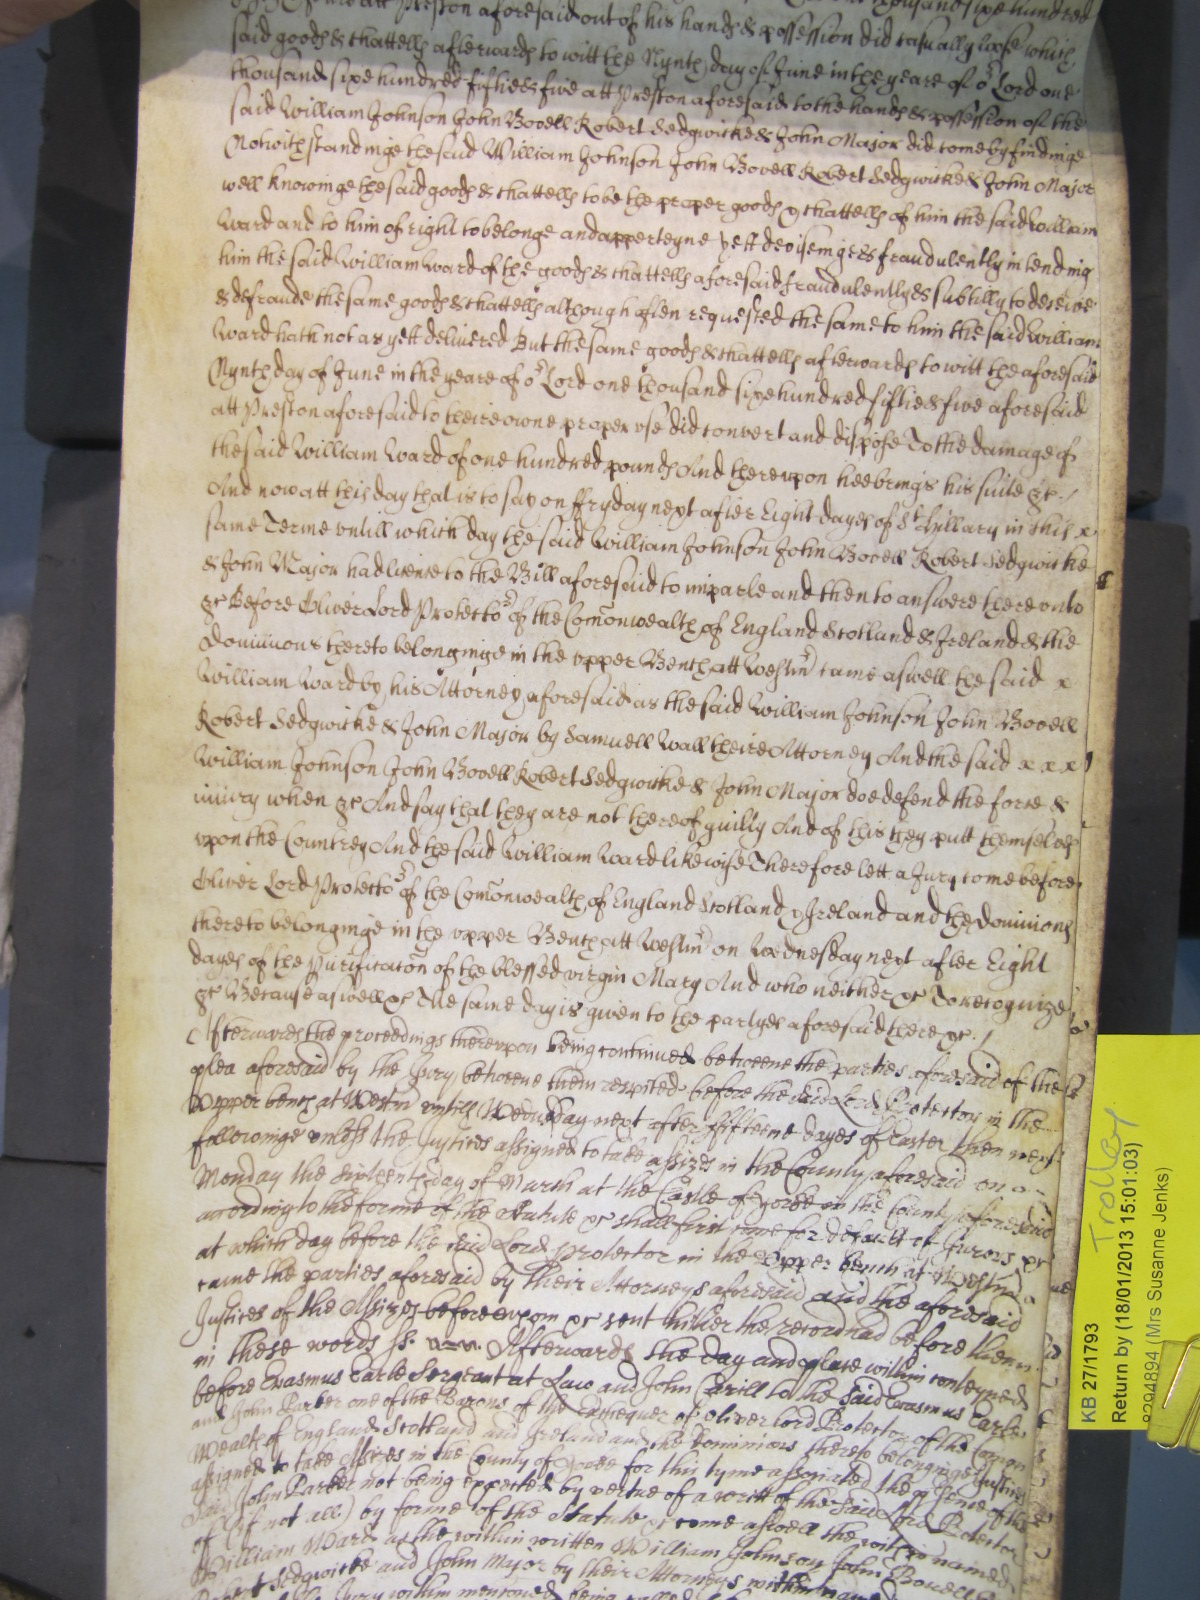 att Preston aforesaid out of his hands & possession did casually loose which
said goods & chattells afterwards to witt the Nynth day of June in the yeare of or Lord one
thousand sixe hundred fiftie & five att Preston aforesaid to the hands & possession of the
said William Johnson John Bovell Robert Sedgwicke & John Major did come by findinge
Notwithstandinge the said William Johnson John Bovell Robert Sedgwicke & John Major
well knowinge the said goods & chattells to be the proper goods & chattells of him the said William
Ward and to him of right to belonge and apperteyne yett devisinge & fraudulently intending
him the said William Ward of the goods & chattells aforesaid fraudulently & subtilly to deceive
& defraude the same goods & chattells although often requested the same to him the said William
Ward hath not as yett delivered But the same goods & chattells afterwards to witt the aforesaid
Nynth day of June in the yeare of or Lord one thousand sixe hundred fiftie & five aforesaid
att Preston aforesaid to theire owne proper use did convert and dispose To the damage of
the said William Ward of one hundred pounds And thereupon hee brings his suite &c./
And now att this day that is to say on ffryday next after Eight dayes of St Hillary in this x
same Terme untill which day the said William Johnson John Bovell Robert Sedgwicke
& John Major had licence to the Bill aforesaid to imparle and then to answere thereunto
&c Before Oliver Lord Protector of the Comonwealth of England Scotland & Ireland & the
Dominions thereto belonginge in the upper Bench att Westmr came aswell the said x
William Ward by his Attorney aforesaid as the said William Johnson John Bovell
Robert Sedgwicke & John Major by Samuell Wall theire Attorney And the said x x x
William Johnson John Bovell Robert Sedgwicke & John Major doe defend the force &
iniury when &c And say that they are not thereof guilty And of this they putt themselves
upon the Countrey And the said William Ward likewise Therefore lett a Jury come before
Oliver Lord Protector of the Comonwealth of England Scotland & Ireland and the Dominions
thereto belonginge in the upper Bench att Westmr on Wednesday next after Eight
dayes of the Purificacon of the blessed virgin Mary And who neither &c To recognize
&c Because aswell &c The same day is given to the partyes aforesaid there &c./
Afterwards the proceedings thereupon being continued betweene the parties aforesaid of the
plea aforesaid by the Jury betweene them respited before the said Lord Protector in the
upper bench at Westmr untill Wednesday next after ffifteene dayes of Easter then next
followinge unless the Justices assigned to take assizes in the County aforesaid on
Monday the sixteenth day of March at the Castle of Yorke in the County aforesaid
according to the forme of the Statute &c shall first come for default of Jurors &c
at which day before the said Lord Protector in the upper bench at Westmr
came the parties aforesaid by their Attorneys aforesaid and the aforesaid
Justices of the Assizes before whom &c sent hither the record had before them
in these words ss. Afterwards the day and place within conteyned
before Erasmus Earle Sergeant at Law and John Carill to the said Erasmus Earle
and John Parker one of the Barons of the Exchequer of Oliver Lord Protector of the Common
Wealth of England Scotland and Ireland and the Dominions thereto belonginge Justices
assigned to take Assizes in the County of Yorke for this tyme associated the presence of the
said John Parker not being expected by vertue of a writt of the said Lord Protector
of (Si non all) by forme of the Statute &c come aswell the within named
William Ward as the within written William Johnson John Bovell
Robert Sedgwicke and John Major by their Attorneys within
Jury within mentioned being
KB 27/1793
Trolley
Return by (18/01/2013 15:01:03)
8294894 (Mrs Susanne Jenks)